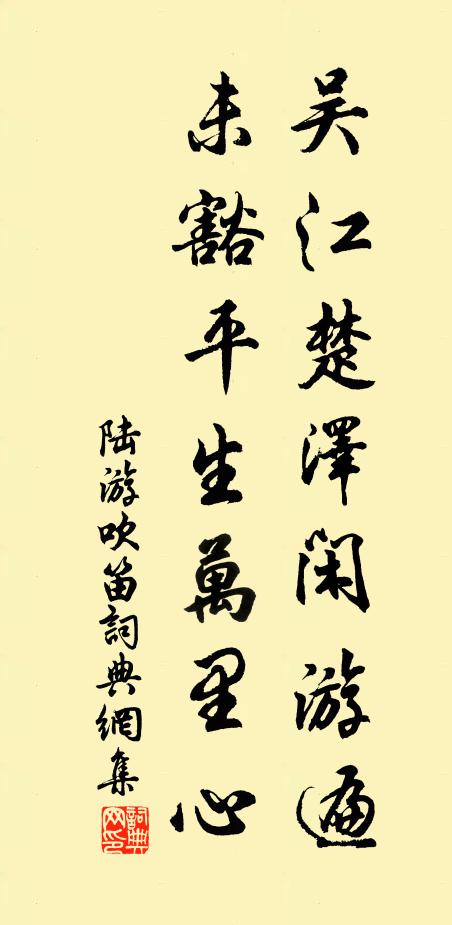 吴江楚澤闲游遍
未豁平生萬里心
陆游吹笛詞典網集
詞典网印